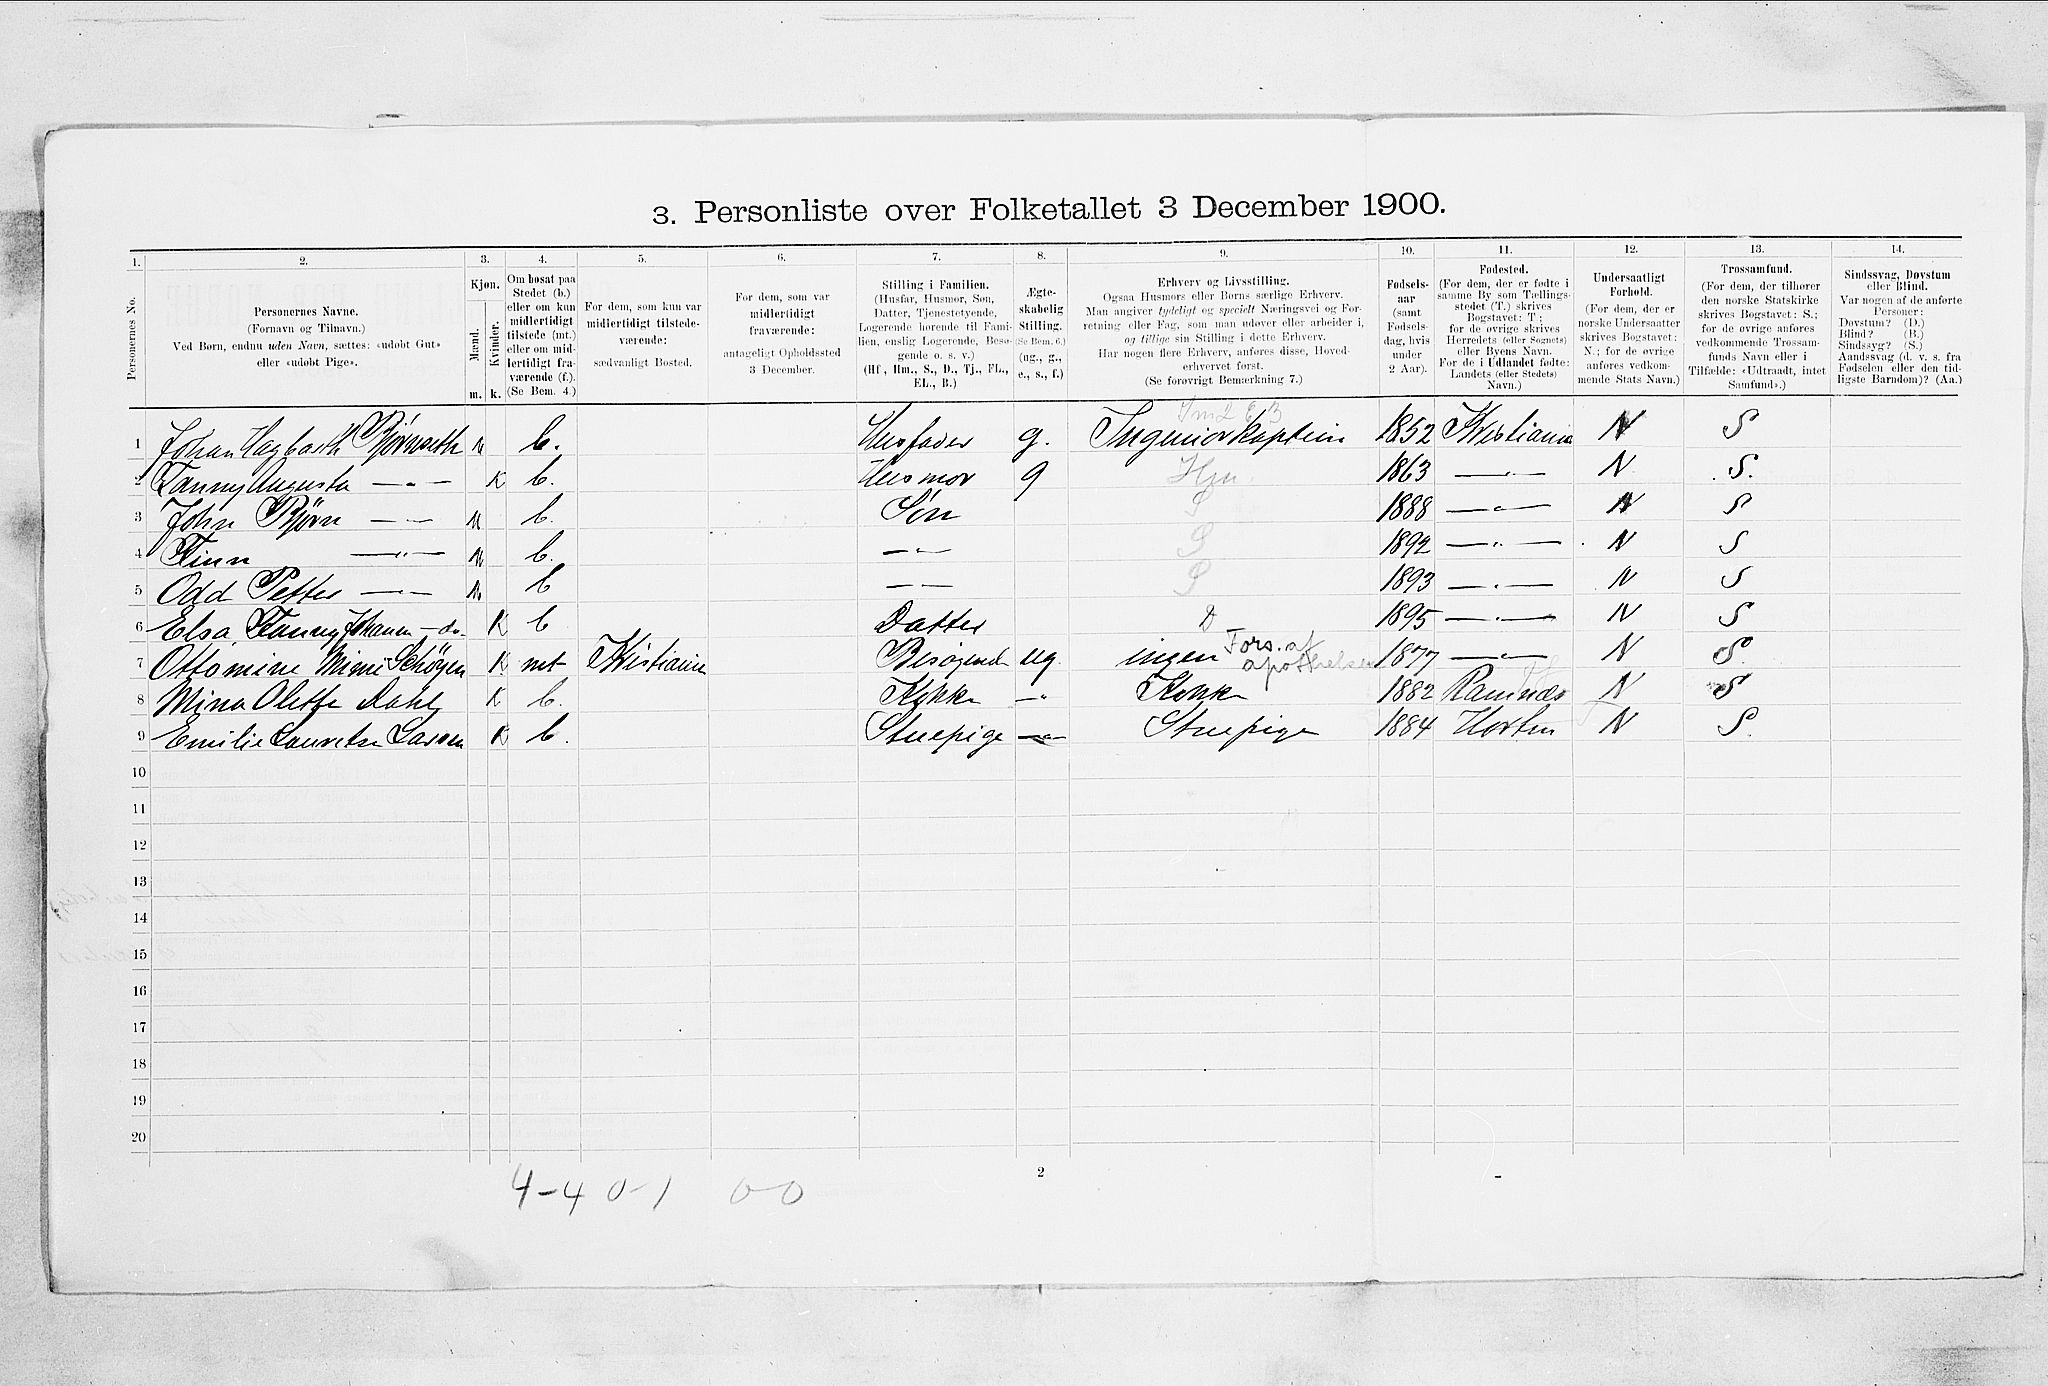 3. Personliste over Folketallet 3 December 1900.
1. 2. 3. 4. 5. 6. 7. 8. 9. 10. 11. 12. 13. 14.
Personernes No.
Personernes Navne.
(Fornavn og Tilnavn.)
Ved Børn, endnu uden Navn, sættes: «udobt Gut»
eller «udobt Pige».
Kjøn.
Mænd.
Kvinder.
m. k.
Om bosat paa
Stedet (b.)
eller om kun
midlertidigt
tilstede (mt.)
eller om mid-
lertidigt fra-
værende (f.).
(Se Bem. 4.)
For dem, som kun var
midlertidigt tilstede-
værende:
sædvanligt Bosted.
For dem, som var
midlertidigt
fraværende:
antageligt Opholdssted
3 December.
Stilling i Familien.
(Husfar, Husmor, Søn,
Datter, Tjenestetyende,
Logerende hørende til Fami-
lien, enslig Logerende, Besø-
gende o. s. v.)
(Hf., Hm., S., D., Tj., FL.,
EL., B.)
Ægte-
skabelig
Stilling.
(Se Bem. 6.)
(ug., g.,
e., s., f.)
Erhverv og Livsstilling.
Ogsaa Husmors eller Børns særlige Erhverv.
Man angiver tydeligt og specielt Næringsvei og For-
retning eller Fag, som man udøver eller arbeider i,
og tillige sin Stilling i dette Erhverv.
Har nogen flere Erhverv, anføres disse, Hoved-
erhvervet først.
(Se forøvrigt Bemærkning 7.)
Fødsels-
aar
(samt
Fødsels-
dag, hvis
under
2 Aar).
Fødested.
(For dem, der er fødte i
samme By som Tællings-
stedet (T.) skrives
Bogstavet: T.;
for de øvrige skrives
Herredets (eller Sognets)
eller Byens Navn.
For de i Udlandet fødte:
Landets (eller Stedets)
Navn.)
Undersaatligt
Forhold.
(For dem, der er
norske Undersaatter
skrives Bogstavet:
N.; for de øvrige
anføres vedkom-
mende Stats Navn.)
Trossamfund.
(For dem, der tilhører
den norske Statskirke
skrives Bogstavet: S.;
for de øvrige anføres
vedkommende Trossam-
funds Navn eller i
Tilfælde: «Udtraadt, intet
Samfund».)
Sindssvag, Døvstum
eller Blind.
Var nogen af de anførte
Personer:
Døvstum? (D.)
Blind? (B.)
Sindssyg? (S.)
Aandssvag (d. v. s. fra
Fødselen eller den tid-
ligste Barndom)? (Aa.)
1 Johan Hagbarth Bjørnseth M b. Husfader g. Ingeniørkaptein 1852 Kristiania N S
2 Fanny Augusta —„— K b. Husmor g Hm 1863 —„— N S.
3 John Bjørn —„— M b. Søn S 1888 —„— N S
4 Finn —„— M b. —„— S 1892 —„— N S
5 Odd Petter —„— M b —„— S 1893 —„— N S
6 Elsa Fanny Johanne —do— K b Datter D 1895 —„— N S
7 Ottomine Mimi Schøyen K mt Kristiania Besøgende ug. ingen Fors. af apothekser 1877 —„— N S.
8 Mina Olette Dahl K b. Kokke —„ Kokke 1882 Ramnæs N S
9 Emilie Lauretse Larsen K b. Stuepige —„— Stuepige 1884 Horten N S.
10
11
12
13
14
15
16
17
18
19
20
2
4-4 0-1 0-0